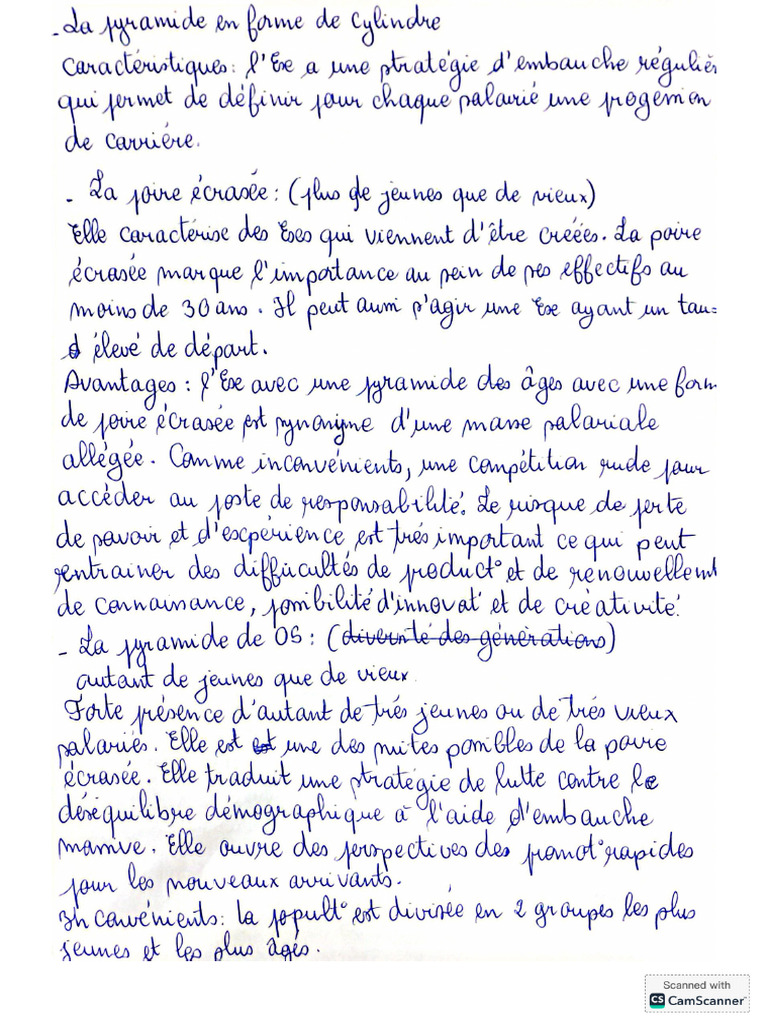 - La pyramide en forme de cylindre
Caractéristiques : l'Ese a une stratégie d'embauche régulièr
qui permet de définir pour chaque salarié une progression
de carrière.
- La poire écrasée : (plus de jeunes que de vieux)
Elle caractérise des Eses qui viennent d'être créées. La poire
écrasée marque l'importance au sein de ses effectifs au
moins de 30 ans. Il peut aussi s'agir une Ese ayant un tau=
élevé de départ.
Avantages : l'Ese avec une pyramide des âges avec une form
de poire écrasée est synonyme d'une masse salariale
allégée. Comme inconvénients, une compétition rude pour
accéder au poste de responsabilité. Le risque de perte
de savoir et d'expérience est très important ce qui peut
entrainer des difficultés de product° et de renouvellemt
de connaissance, possibilité d'innovat° et de créativité.
- La pyramide de OS : (diversité des générations)
autant de jeunes que de vieux.
Forte présence d'autant de très jeunes ou de très vieux
salariés. Elle est est une des suites possibles de la poire
écrasée. Elle traduit une stratégie de lutte contre le
déséquilibre démographique à l'aide d'embauche
massive. Elle ouvre des perspectives des promot° rapides
pour les nouveaux arrivants.
Inconvénients : la popult° est divisée en 2 groupes les plus
jeunes et les plus âgés.
Scanned with
CS CamScanner